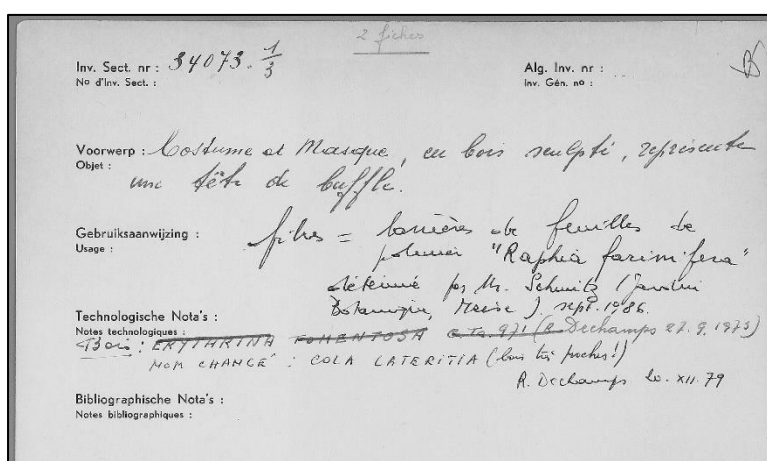 2 fiches
Inv. Sect. nr : 34073. 1/3
No d'Inv. Sect. :
Alg. Inv. nr :
Inv. Gén. no :
Voorwerp : Costume et Masque, en bois sculpté, représente
Objet :
une tête de buffle.
Gebruiksaanwijzing :
Usage :
fibres = lanières de feuilles de
palmier "Raphia farinifera"
déterminé par Mr. Schmitz (Jardin
Botanique, Meise). sept. 1986.
Technologische Nota's :
Notes technologiques :
Bois : ERYTHRINA TOMENTOSA 971 (R. Dechamps 27.9.1973)
NOM CHANGÉ : COLA LATERITIA (bois très proches!)
R. Dechamps 20.XII.79
Bibliographische Nota's :
Notes bibliographiques :